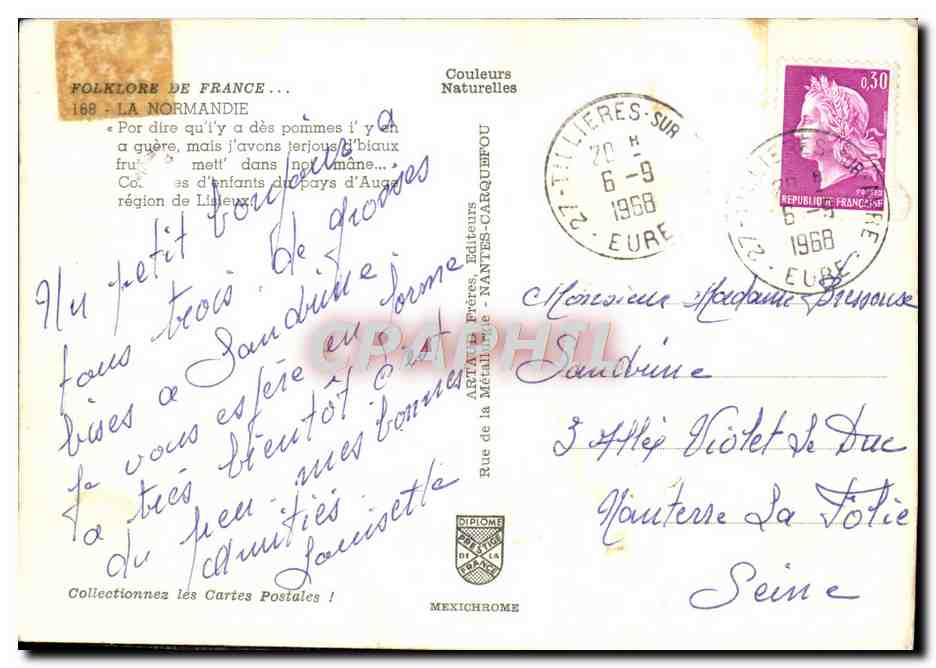 FOLKLORE DE FRANCE...
168 - LA NORMANDIE
« Por dire qu'i'y a dès poimmes i' y en
a guère, mais j'avons terjous d'biaux
mett' dans not' mâne...
d'enfants du pays d'Auge
région de Lisieux
Un petit bonjour a
tous trois. de grosses
bises a Sandrine.
Je vous espère en forme
a tres bientôt. C'est
du peu. mes bonnes
amitiés.
Louisette
Collectionnez les Cartes Postales !
Couleurs
Naturelles
ARTAUD Frères, Editeurs
Rue de la Métallurgie - NANTES-CARQUEFOU
DIPLOME
PRESTIGE
DE LA
FRANCE
MEXICHROME
0,30
POSTES
REPUBLIQUE FRANÇAISE
27-TILLIERES-SUR
20 H
6 - 9
1968
EURE
1968
EURE
Monsieur Madame
Sandrine
3 Allée Violet Le Duc
Nanterre La Folie
Seine
CPAPHIL